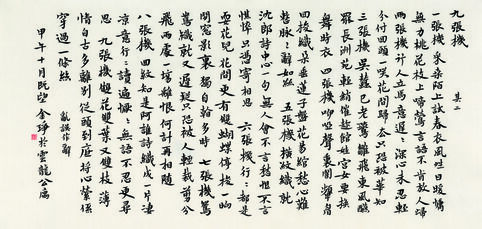 九張機 其二
一張機 采桑陌上試春衣 風晴日暖慵
無力桃花枝上啼鶯言語不肯放人歸
兩張機 行人立馬意遲〻 深心未忍輕
分付回頭一笑花間歸去只恐被花知
三張機 吳蠶已老燕雛飛 東風宴
罷長洲苑輕綃催趁館娃宮女要換
舞時衣 四張機 咿啞聲裏暗顰眉
回梭織朵垂蓮子盤花易綰愁心難
整脉〻亂如絲 五張機 橫紋織就
沈郎詩中心一句無人會不言愁恨不言
憔悴只憑寄相思 六張機 行〻都是
耍花兒花間更有雙蝴蝶停梭一晌
閒窗影裏獨自看多時 七張機 鴛
鴦織就又遲疑只恐被人輕裁剪分
飛兩處一場離恨何計再相隨
八張機 回紋知是阿誰詩織成一片淒
涼意行〻讀遍懨〻無語不忍更尋
思 九張機 雙花雙葉又雙枝 薄
情自古多離別從頭到底將心縈係
穿過一條絲 亂誤作
甲午十月既望 金 於雲龍公寓